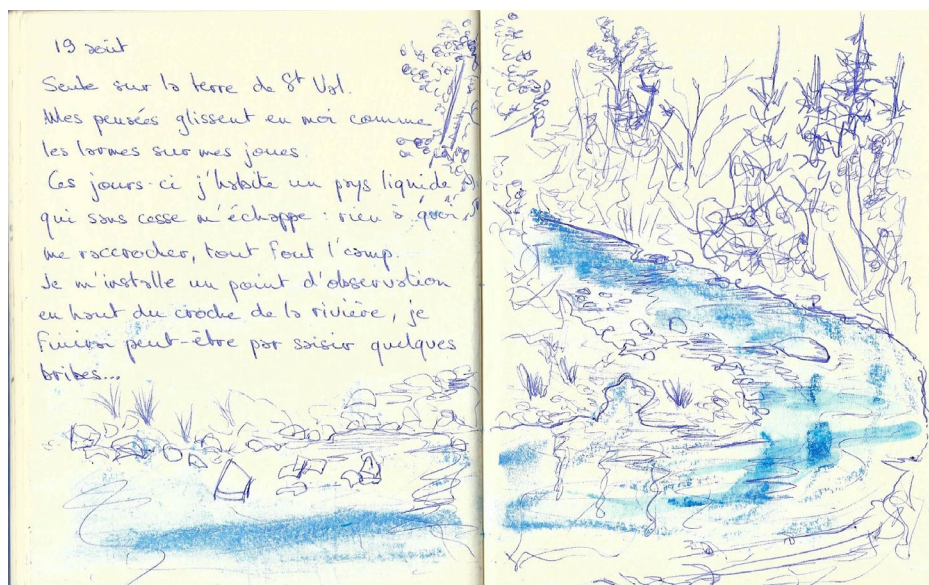 19 août
Seule sur la terre de St Val.
Mes pensées glissent en moi comme
les larmes sur mes joues.
Ces jours-ci j'habite un pays liquide
qui sans cesse m'échappe : rien à quoi
me raccrocher, tout fout l'camp.
Je m'installe un point d'observation
en haut du croche de la rivière, je
finirai peut-être par saisir quelques
bribes...